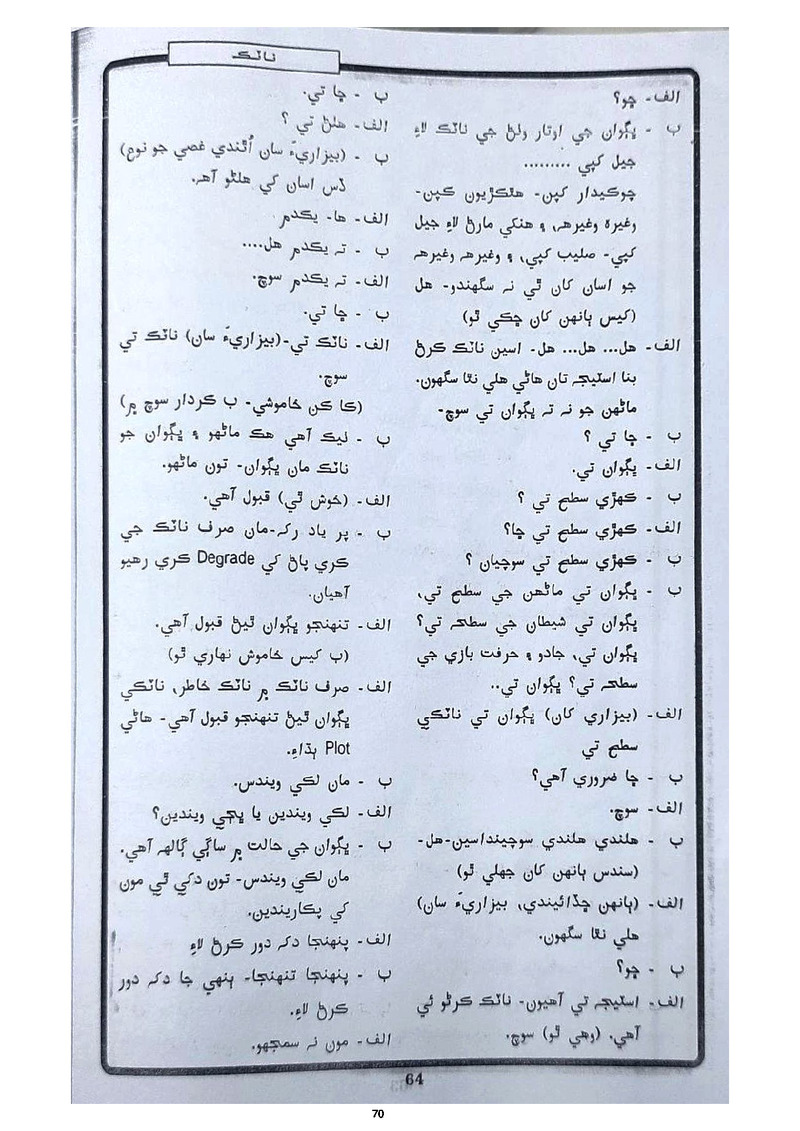 ناٽڪ
الف- ڇو؟
ب - ڀڳوان جي اوتار وٺڻ جي ناٽڪ لاءِ
جيل کپي .........
چوڪيدار کپن- هٿڪڙيون کپن-
وغيره وغيرهه، ۽ هنکي مارڻ لاءِ جيل
کپي- صليب کپي، ۽ وغيرهه وغيرهه
جو اسان کان ٿي نه سگهندو- هل
(کيس ٻانهن کان ڇڪي ٿو)
الف- هل... هل... هل- اسين ناٽڪ ڪرڻ
بنا اسٽيجه تان هاڻي هلي نٿا سگهون.
ماڻهن جو نه ته ڀڳوان تي سوچ-
ب - ڇا تي ؟
الف- ڀڳوان تي.
ب - ڪهڙي سطح تي ؟
الف- ڪهڙي سطح تي ڇا؟
ب - ڪهڙي سطح تي سوچيان ؟
ب - ڀڳوان تي ماڻهن جي سطح تي،
ڀڳوان تي شيطان جي سطحه تي؟
ڀڳوان تي، جادو ۽ حرفت بازي جي
سطحه تي؟ ڀڳوان تي..
الف- (بيزاري کان) ڀڳوان تي ناٽڪي
سطح تي
ب - ڇا ضروري آهي؟
الف- سوچ.
ب - هلندي هلندي سوچينداسين-هل-
(سندس ٻانهن کان جهلي ٿو)
الف- (ٻانهن ڇڏائيندي، بيزاريءَ سان)
هلي نٿا سگهون.
ب - ڇو؟
الف- اسٽيجه تي آهيون- ناٽڪ ڪرڻو ئي
آهي. (وهي ٿو) سوچ.
ب - ڇا تي.
الف- هلڻ تي ؟
ب - (بيزاريءَ سان اُٿندي غصي جو نوع)
ڏس اسان کي هلڻو آهه.
الف- ها- يڪدم
ب - ته يڪدم هل....
الف- ته يڪدم سوچ.
ب - ڇا تي.
الف- ناٽڪ تي-(بيزاريءَ سان) ناٽڪ تي
سوچ.
(ڪا کن خاموشي- ب ڪردار سوچ ۾)
ب - ٺيڪ آهي هڪ ماڻهو ۽ ڀڳوان جو
ناٽڪ مان ڀڳوان- تون ماڻهو.
الف- (خوش ٿي) قبول آهي.
ب - پر ياد رکه-مان صرف ناٽڪ جي
ڪري پاڻ کي Degrade ڪري رهيو
آهيان.
الف- تنهنجو ڀڳوان ٿيڻ قبول آهي.
(ب کيس خاموش نهاري ٿو)
الف- صرف ناٽڪ ۾ ناٽڪ خاطر، ناٽڪي
ڀڳوان ٿيڻ تنهنجو قبول آهي- هاڻي
Plot ٻڌاءِ.
ب - مان لڪي ويندس.
الف- لڪي ويندين يا ڀڄي ويندين؟
ب - ڀڳوان جي حالت ۾ ساڳي ڳالهه آهي.
مان لڪي ويندس- تون دکي ٿي مون
کي پڪاريندين.
الف- پنهنجا دک دور ڪرڻ لاءِ
ب - پنهنجا تنهنجا- ٻنهي جا دک دور
ڪرڻ لاءِ.
الف- مون نه سمجهو.
64
70